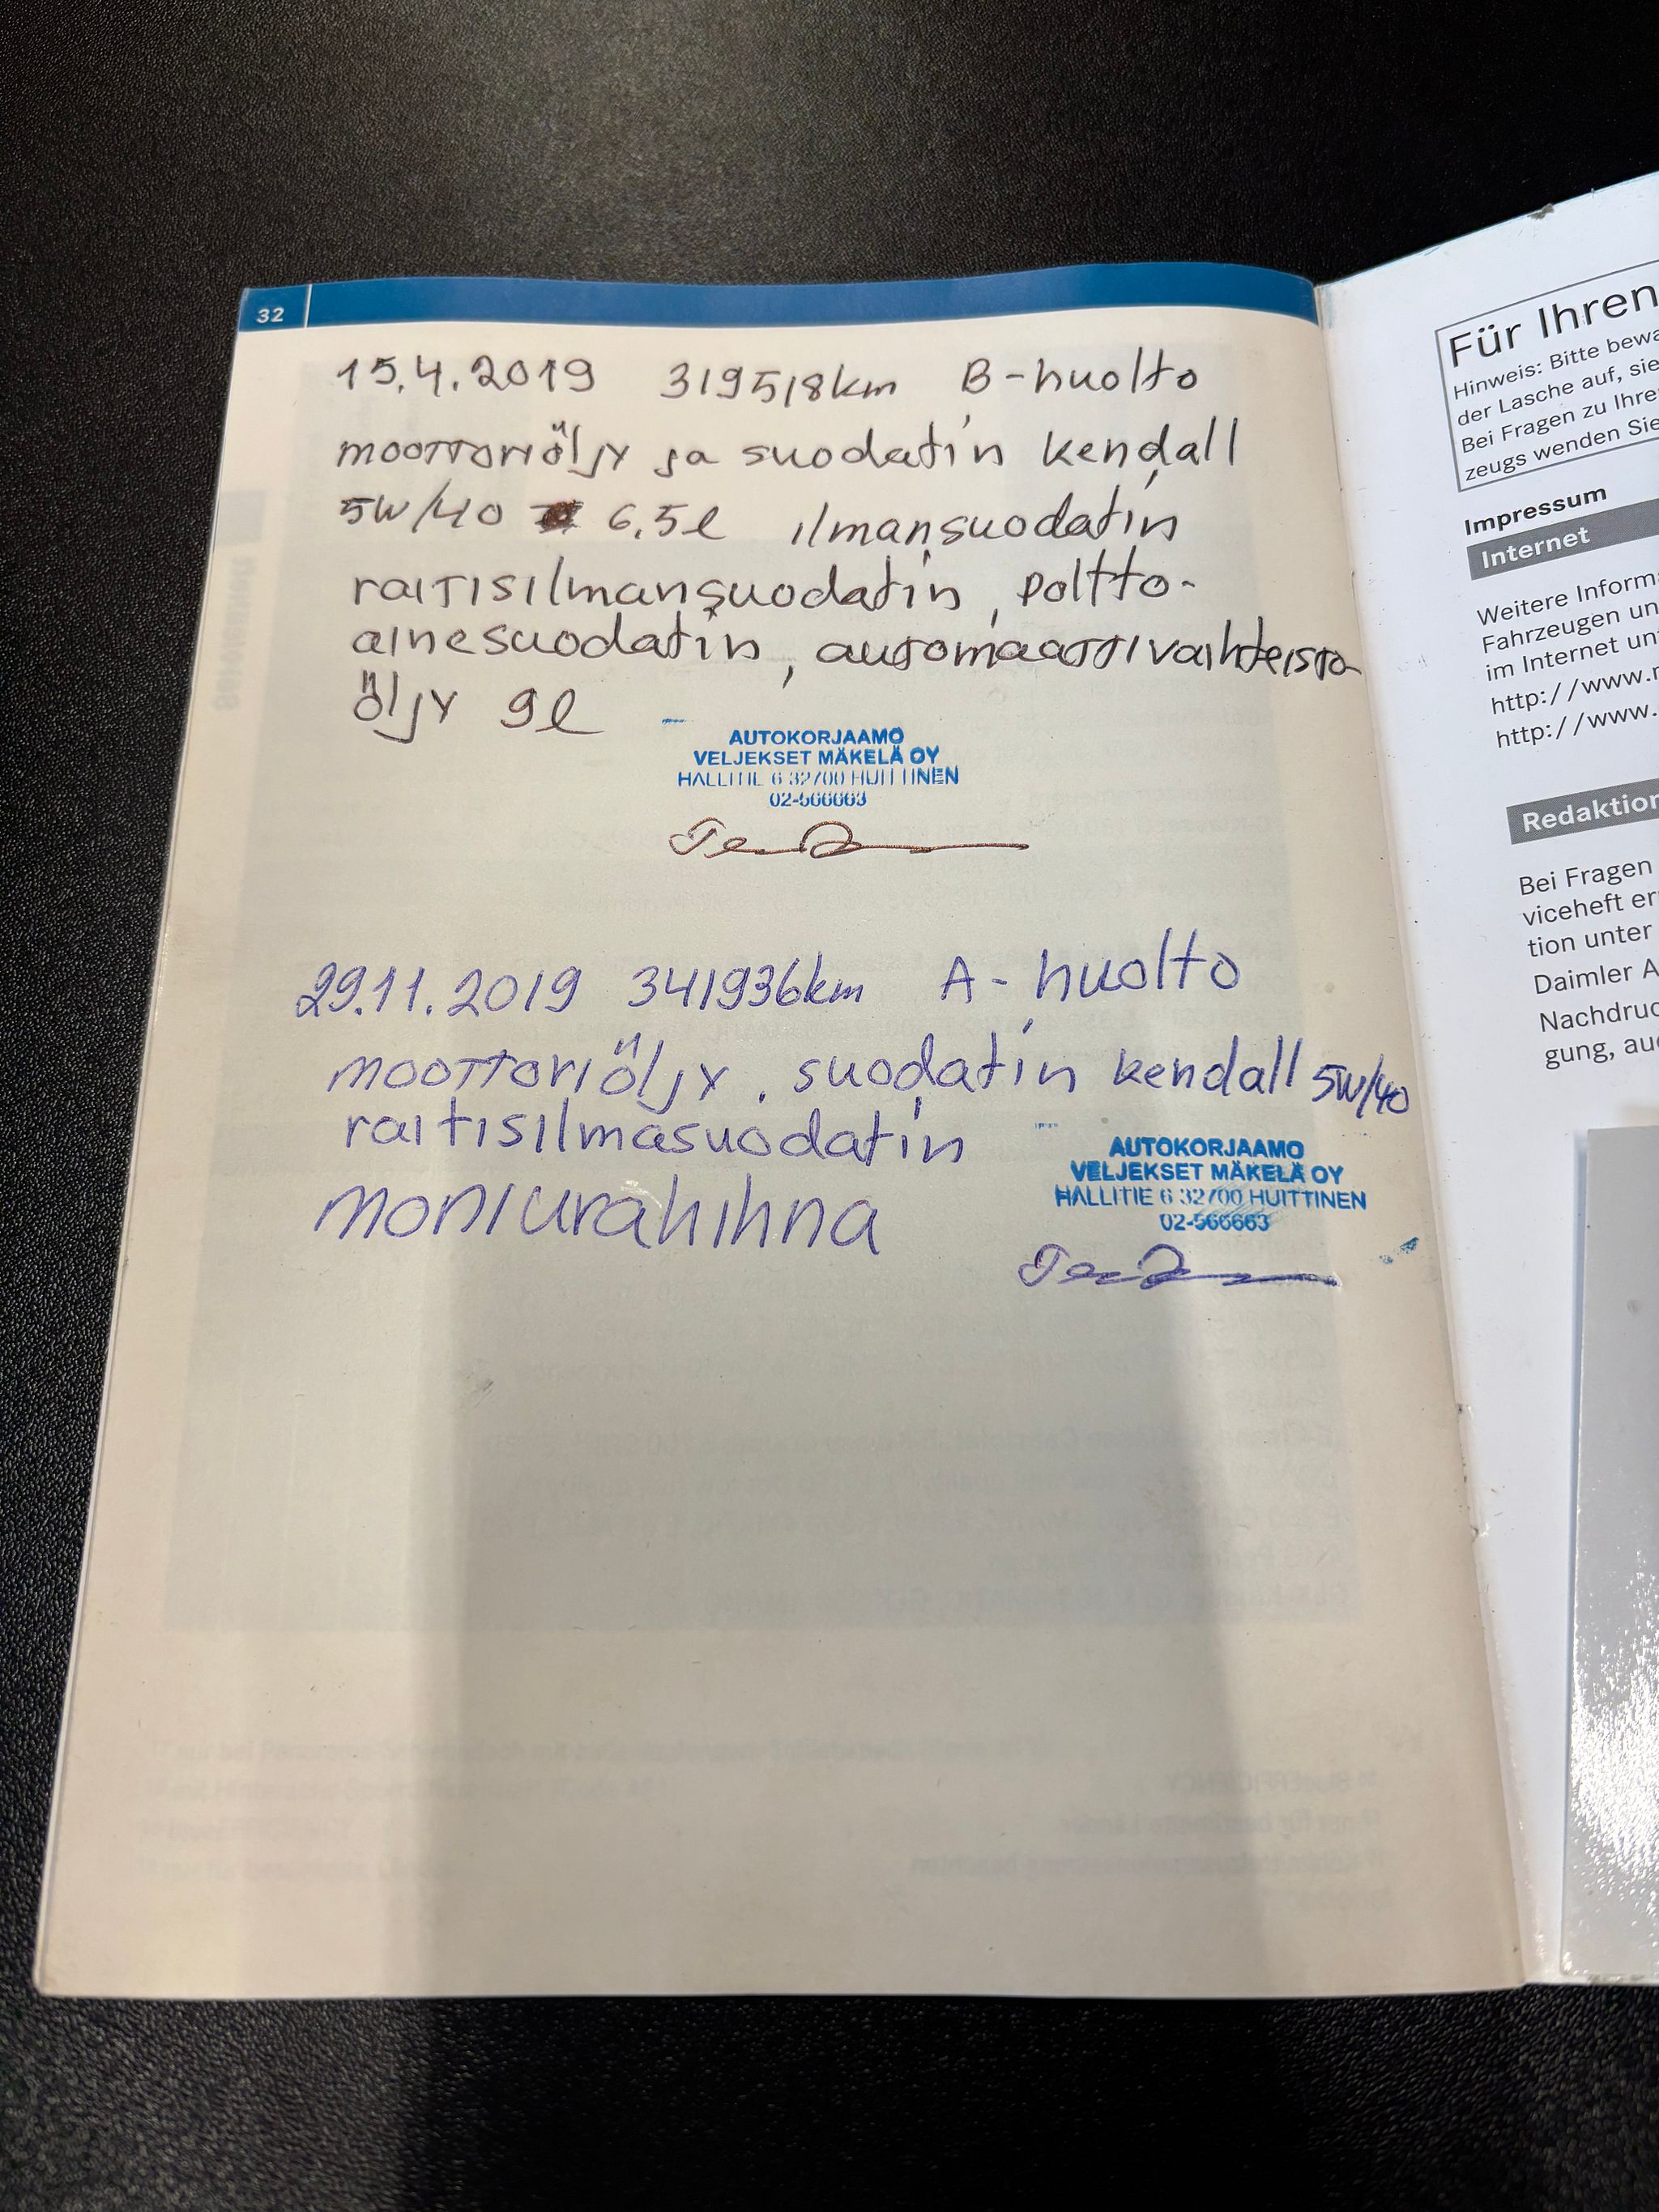 32
15.4.2019 319518km B-huolto
moottoriöljy ja suodatin kendall
5W/40 6,5l ilmansuodatin
raitisilmansuodatin, poltto-
ainesuodatin, automaattivaihteisto
öljy 9l
AUTOKORJAAMO
VELJEKSET MÄKELÄ OY
HALLITIE 6 32700 HUITTINEN
02-566663
29.11.2019 341936km A-huolto
moottoriöljy, suodatin kendall 5W/40
raitisilmasuodatin
moniurahihna
AUTOKORJAAMO
VELJEKSET MÄKELÄ OY
HALLITIE 6 32700 HUITTINEN
02-566663
Für Ihren
Hinweis: Bitte bewa
der Lasche auf, sie
Bei Fragen zu Ihre
zeugs wenden Sie
Impressum
Internet
Weitere Inform
Fahrzeugen un
im Internet un
http://www.
http://www.
Redaktion
Bei Fragen
viceheft er
tion unter
Daimler A
Nachdruc
gung, au